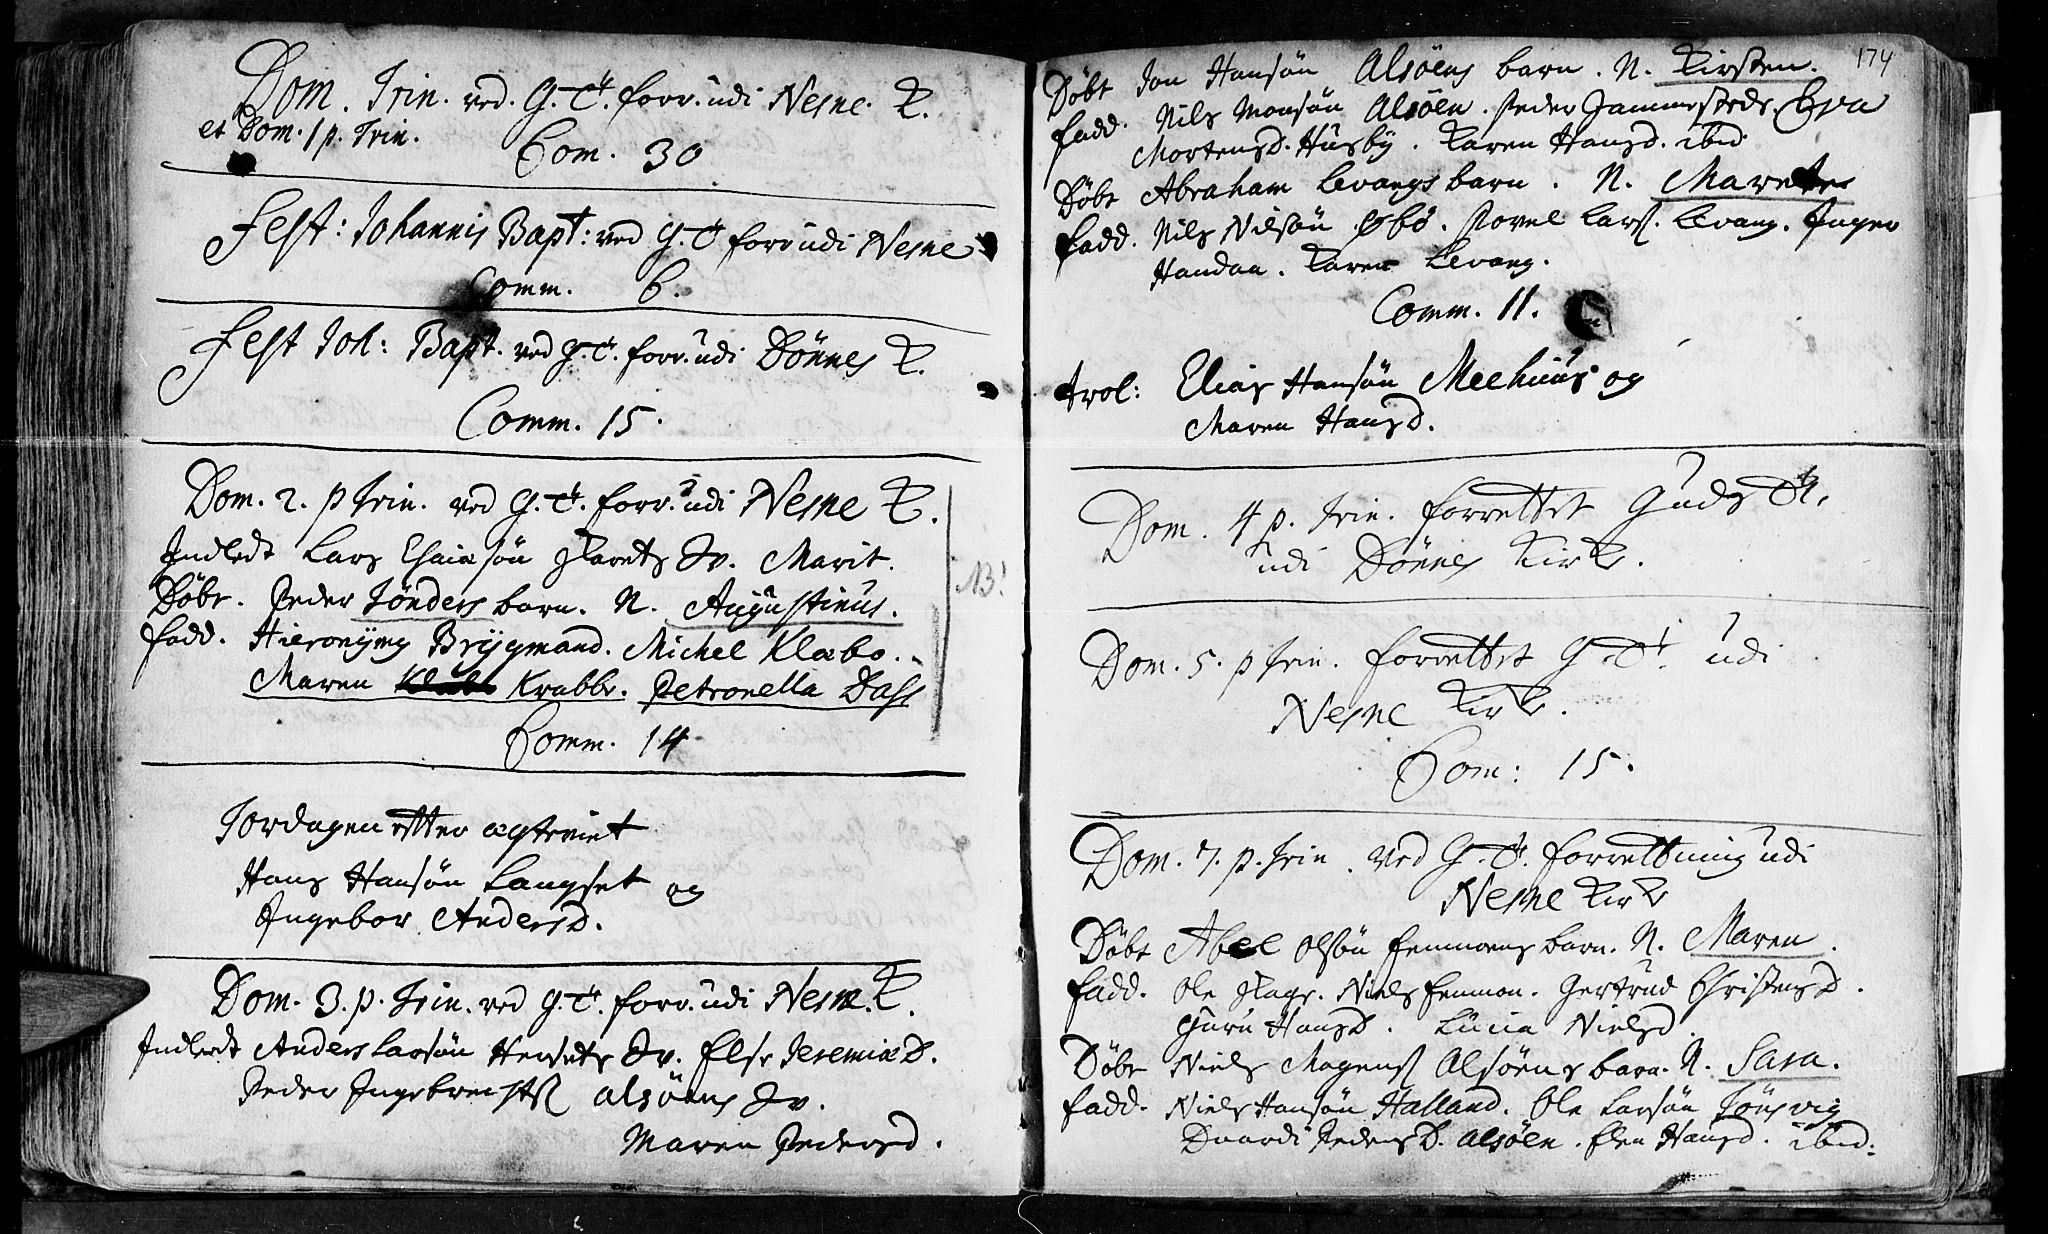 Dom. Trin. ved. G. T. forr. udi Nesne. K.
et Dom. 1 p. Trin.
Com. 30
Fest: Johannis Bapt: ved G. T forr udi Nesne
Comm. 6.
Fest Joh: Bapt. ved G. T. forr. udi Dönnes K.
Comm. 15.
Dom. 2. p Trin. ved G. T. forr. udi Nesne K.
Indledt Lars Esaiasøn Qv. Marit.
NB!
Döbt. Peder Tönders barn. N. Augustinus.
fadd. Hieronÿmg Brÿgmand. Michel Klabo.
Maren Krabbe. Petronella Dass
Comm. 14
Tordagen effter ægteviet
Hans Hansøn Langset og
Ingebor Andersd.
Dom. 3. p. Trin. ved G. T. forr. udi Nesne. K.
Indledt Anders Larsøn Qv. Else Jeremiæ D.
Peder Ingebrechts Alsöens Qv.
Maren Pedersd.
174
Döbt Jon Hansøn Alsöens barn. N. Kirsten.
fadd. Nils Monsøn Alsöen. Peder Eva
Mortensd. Husby. Karen Hansd. ibid
Döbt Abraham Levangs barn. N. Marete
fadd. Nils Nilsøn Povel Lars. Levang. Inger
Handaa. Karen Levang.
Comm. 11.
trol: Elias Hansøn Meehuus og
Maren Hansd.
Dom. 4 p. Trin. forrettet Guds T.
udi Dönnes Kirke.
Dom. 5. p Trin. forrettet G. T. udi
Nesne Kirke.
Com: 15.
Dom. 7. p. Trin. ved G. T. forrettning udi
Nesne Kirke
Döbt Abel Olsøn barn. N. Maren.
fadd. Ole Niels Gertrud Christensd.
Guru Hansd. Lucia Nielsd.
Döbt Niels Mogens Alsöens barn. N. Sara.
fadd. Niels Hansøn Halland. Ole Larsøn Tönsvig
Pedersd. Alsöen. Elen Hansd. ibid: